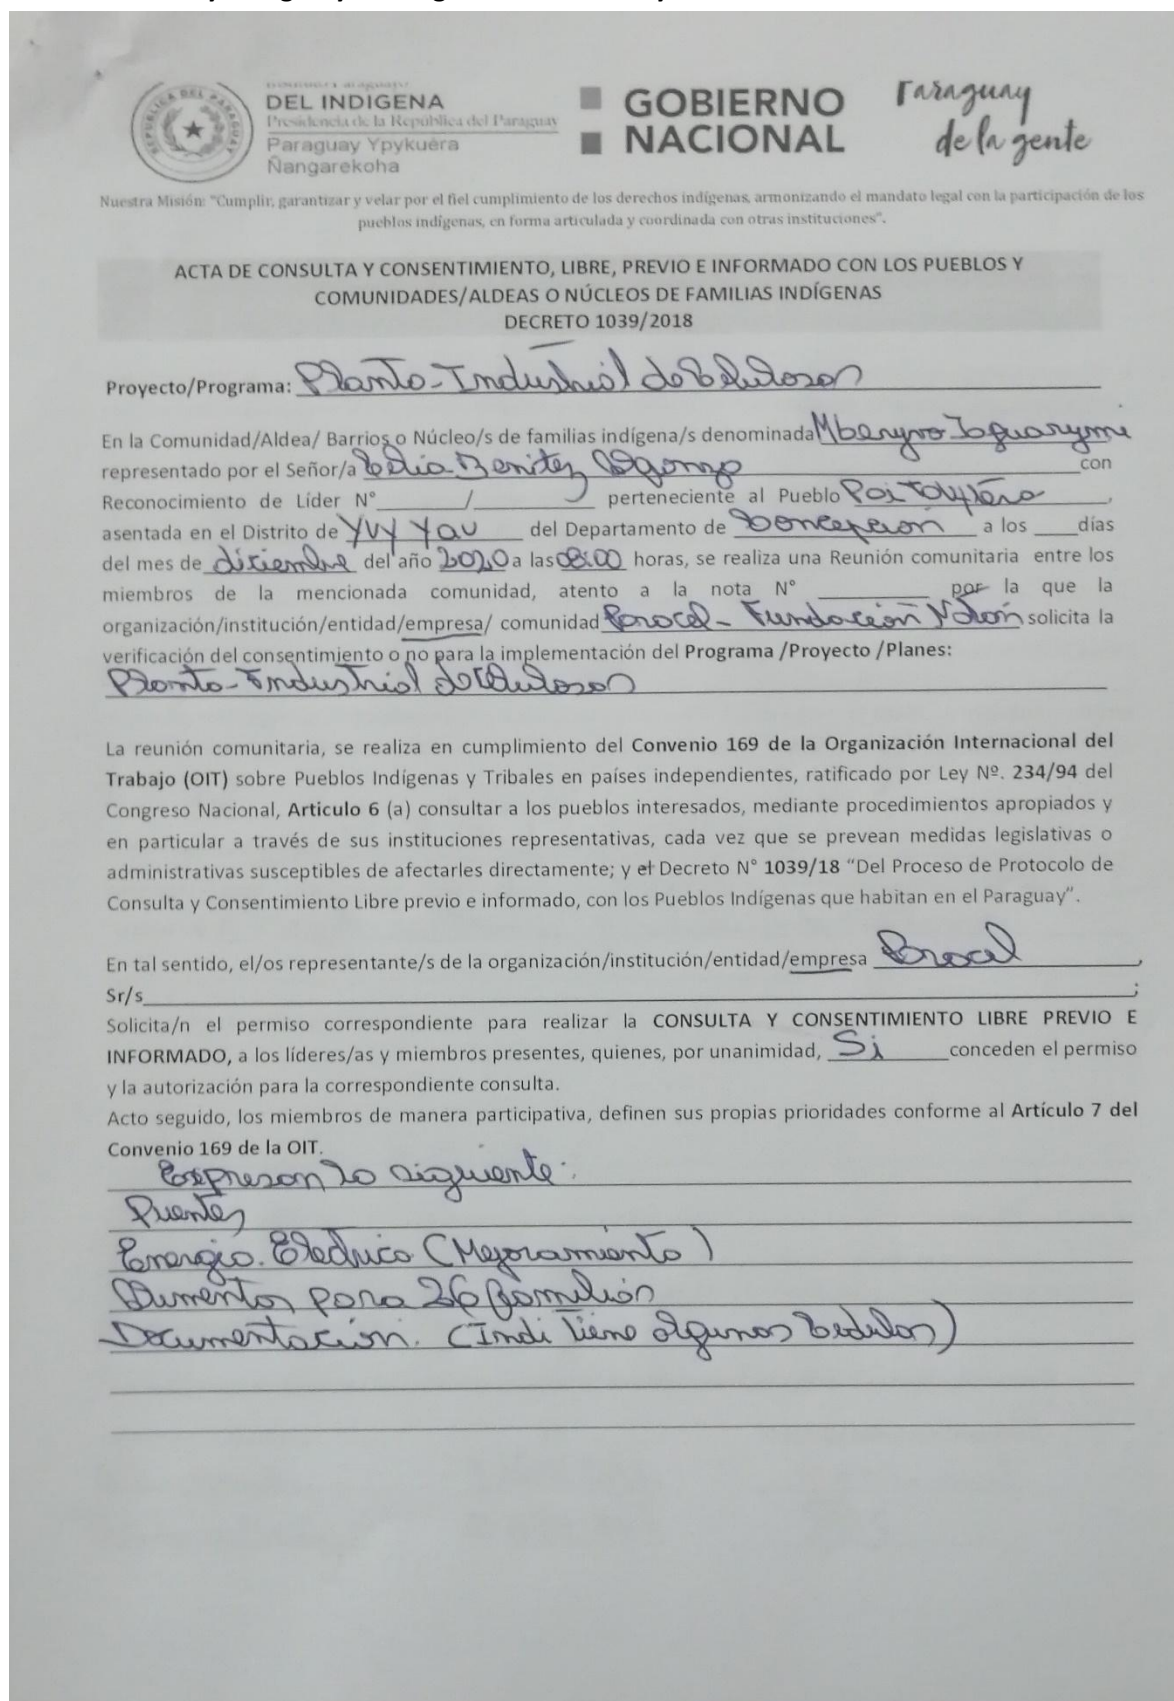 DEL INDIGENA
Presidencia de la República del Paraguay
Paraguay Ypykuéra
Ñangarekoha
REPUBLICA DEL PARAGUAY
GOBIERNO
NACIONAL
Paraguay
de la gente
Nuestra Misión: "Cumplir, garantizar y velar por el fiel cumplimiento de los derechos indígenas, armonizando el mandato legal con la participación de los
pueblos indígenas, en forma articulada y coordinada con otras instituciones".
ACTA DE CONSULTA Y CONSENTIMIENTO, LIBRE, PREVIO E INFORMADO CON LOS PUEBLOS Y
COMUNIDADES/ALDEAS O NÚCLEOS DE FAMILIAS INDÍGENAS
DECRETO 1039/2018
Proyecto/Programa: Planta Industrial de Celulosa
En la Comunidad/Aldea/ Barrios o Núcleo/s de familias indígena/s denominada Jaguarymi
representado por el Señor/a Celia Benitez con
Reconocimiento de Líder N° / perteneciente al Pueblo Pai Tavytera,
asentada en el Distrito de Yvy Yau del Departamento de Concepción a los ____ días
del mes de diciembre del año 2020 a las 08:00 horas, se realiza una Reunión comunitaria entre los
miembros de la mencionada comunidad, atento a la nota N° ________ por la que la
organización/institución/entidad/empresa/ comunidad Paracel - Fundación solicita la
verificación del consentimiento o no para la implementación del Programa /Proyecto /Planes:
Planta Industrial de Celulosa
La reunión comunitaria, se realiza en cumplimiento del Convenio 169 de la Organización Internacional del
Trabajo (OIT) sobre Pueblos Indígenas y Tribales en países independientes, ratificado por Ley Nº. 234/94 del
Congreso Nacional, Articulo 6 (a) consultar a los pueblos interesados, mediante procedimientos apropiados y
en particular a través de sus instituciones representativas, cada vez que se prevean medidas legislativas o
administrativas susceptibles de afectarles directamente; y el Decreto N° 1039/18 "Del Proceso de Protocolo de
Consulta y Consentimiento Libre previo e informado, con los Pueblos Indígenas que habitan en el Paraguay".
En tal sentido, el/os representante/s de la organización/institución/entidad/empresa Paracel,
Sr/s________;
Solicita/n el permiso correspondiente para realizar la CONSULTA Y CONSENTIMIENTO LIBRE PREVIO E
INFORMADO, a los líderes/as y miembros presentes, quienes, por unanimidad, Si conceden el permiso
y la autorización para la correspondiente consulta.
Acto seguido, los miembros de manera participativa, definen sus propias prioridades conforme al Artículo 7 del
Convenio 169 de la OIT.
Expresan lo siguiente:
Puentes
Energia Electrica (Mejoramiento)
Alimentos para 26 familias
Documentación. (Indi tiene algunas Cedulas)